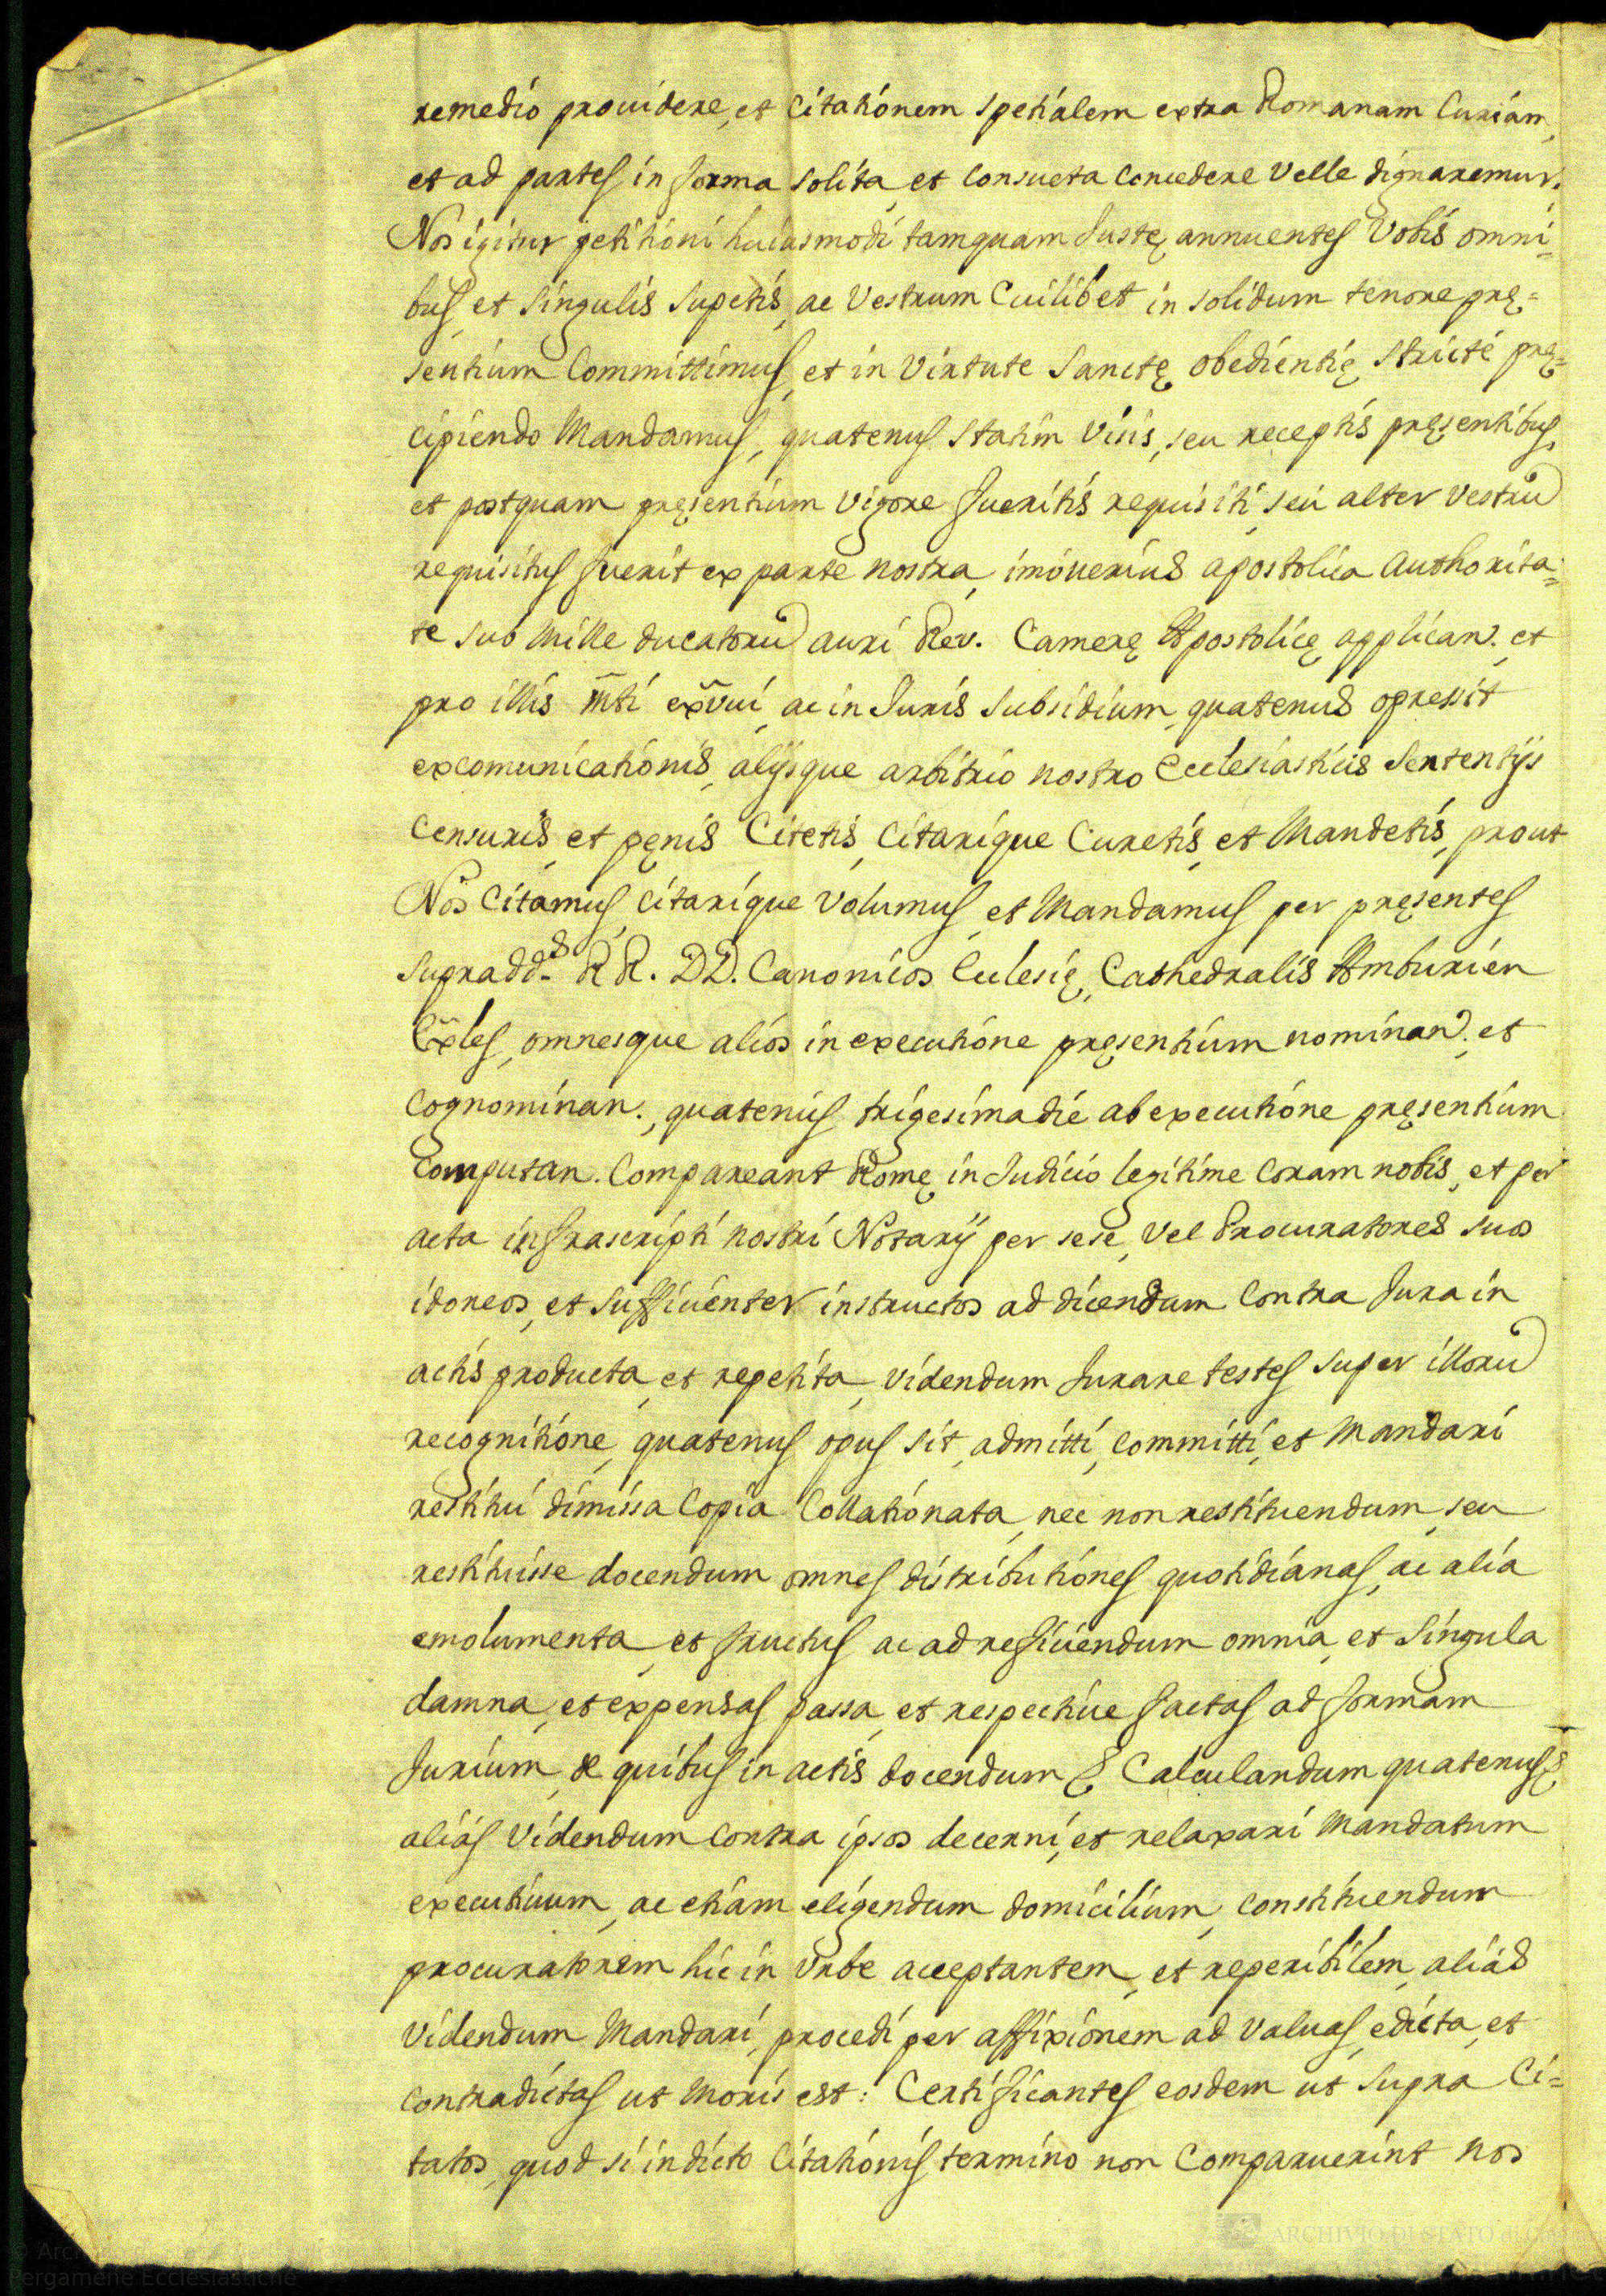 remedio prouidere, et Citationem spetialem extra Romanam Curiam,
et ad partes in forma solita, et consueta concedere velle dignaremur.
Nos igitur petitioni huiusmodi tamquam Justę annuentes Vobis omni=
bus, et singulis supetis, ac Vestrum Cuilibet in solidum tenore prę=
sentium Committimus, et in Virtute Sanctę obedientię stricté prę=
cipiendo Mandamus, quatenus statim Visis, seu receptis pręsentibus,
et postquam pręsentium Vigore fueritis requisiti, seu alter vestrũ
requisitus fuerit ex parte nostra, imòuerius apostolica Authorita=
te sub Mille ducatorũ auri Rev. Camerę Apostolicę applican. et
pro illis m̃ti ex̃vui, ac in Juris subsidium, quatenus opressit
excomunicationis, alijsque arbitrio nostro Ecclesiasticis sententijs
Censuris, et pęnis Citetis, Citarique Curetis, et Mandetis, prout
Nos Citamus, Citarique Volumus, et Mandamus per pręsentes
supradd.s RR. DD. Canonicos Eclesię Cathedralis Amburien
Ex̃les, omnesque alios in executione pręsentium nominan. et
Cognominan., quatenus trigesima die ab executione pręsentium
Computan. Compareant Romę in Judicio legitime Coram nobis, et per
acta infrascripti nostri Notarij per sese, Vel Procuratores suos
idoneos, et sufficienter instructos ad dicendum Contra Jura in
actis producta, et repetita, videndum Jurare testes super illorũ
recognitione, quatenus opus sit, admitti, committi, et Mandari
restitui dimissa Copia Collationata, nec non restituendum, seu
restituisse docendum omnes distributiones quotidianas, ac alia
emolumenta, et fructus ac ad reficiendum omnia, et singula
damna, et expensas passa, et respectiue factas ad formam
Jurium, de quibus in actis docendum & Calculandum quatenus &
aliàs Videndum Contra ipsos decerni, et relaxari Mandatum
executiuum, ac etiam eligendum domicilium, constituendum
procuratorem hic in Vrbe acceptantem, et reperibilem, aliàs
Videndum Mandari, procedi per affixionem ad Valuas, edicta, et
contradictas ut Moris est: Certificantes eosdem ut supra Ci=
tatos, quod si in dicto Citationis termino non Comparuerint nos
ARCHIVIO DI STATO di
Pergamene Ecclesiastiche